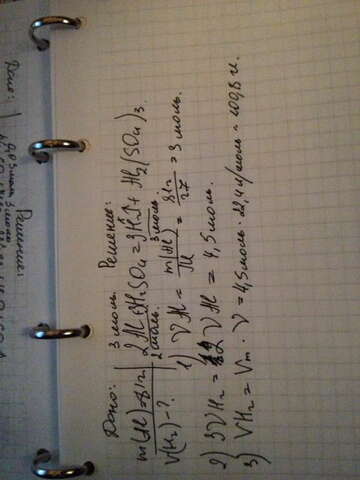 Дано:
m(Al)=81г.
V(H2)-?
Решение:
3 моль
2Al+3H2SO4=3H2↑+Al2(SO4)3.
2 моль 3 моль
1) νAl = m(Al)/M = 81г/27 = 3 моль.
2) 3νH2 = 2νAl = 4,5 моль.
3) VH2 = Vm · ν = 4,5 моль · 22,4 л/моль = 100,8 л.
Дано:
Решение: